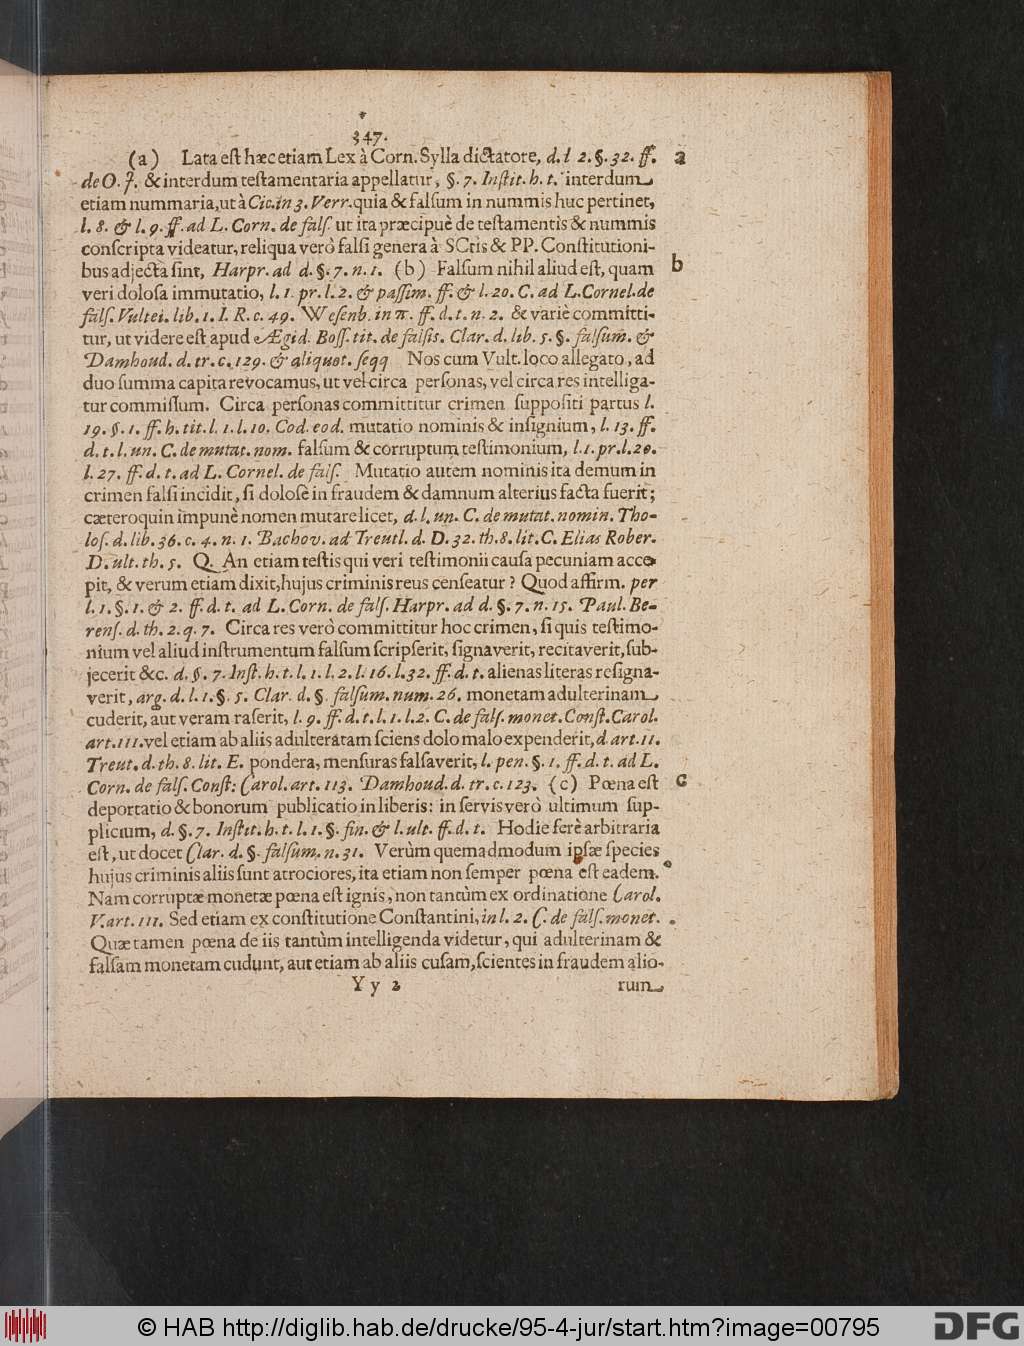 347.
(a) Lata est hæc etiam Lex à Corn. Sylla dictatore, d. l 2. §. 32. ff. a
de O. J. & interdum testamentaria appellatur, §. 7. Instit. h. t. interdum
etiam nummaria, ut à Cic. in 3. Verr. quia & falsum in nummis huc pertinet,
l. 8. & l. 9. ff. ad L. Corn. de fals. ut ita præcipuè de testamentis & nummis
conscripta videatur, reliqua verò falsi genera à SCtis & PP. Constitutioni-
bus adjecta sint, Harpr. ad d. §. 7. n. 1. (b) Falsum nihil aliud est, quam b
veri dolosa immutatio, l. 1. pr. l. 2. & passim. ff. & l. 20. C. ad L. Cornel. de
fals. Vultei. lib. 1. I. R. c. 49. Wesenb. in π. ff. d. t. n. 2. & variè committi-
tur, ut videre est apud Ægid. Boss. tit. de falsis. Clar. d. lib. 5. §. falsum. &
Damhoud. d. tr. c. 129. & aliquot. seqq Nos cum Vult. loco allegato, ad
duo summa capita revocamus, ut vel circa personas, vel circa res intelliga-
tur commissum. Circa personas committitur crimen suppositi partus l.
19. §. 1. ff. h. tit. l. 1. l. 10. Cod. eod. mutatio nominis & insignium, l. 13. ff.
d. t. l. un. C. de mutat. nom. falsum & corruptum testimonium, l. 1. pr. l. 20.
l. 27. ff. d. t. ad L. Cornel. de fals. Mutatio autem nominis ita demum in
crimen falsi incidit, si dolosè in fraudem & damnum alterius facta fuerit;
cæteroquin impunè nomen mutare licet, d. l. un. C. de mutat. nomin. Tho-
los. d. lib. 36. c. 4. n. 1. Bachov. ad Treutl. d. D. 32. th. 8. lit. C. Elias Rober.
D. ult. th. 5. Q. An etiam testis qui veri testimonii causa pecuniam acce-
pit, & verum etiam dixit, hujus criminis reus censeatur? Quod affirm. per
l. 1. §. 1. & 2. ff. d. t. ad L. Corn. de fals. Harpr. ad d. §. 7. n. 15. Paul. Be-
rens. d. th. 2. q. 7. Circa res verò committitur hoc crimen, si quis testimo-
nium vel aliud instrumentum falsum scripserit, signaverit, recitaverit, sub-
jecerit &c. d. §. 7. Inst. h. t. l. 1. l. 2. l. 16. l. 32. ff. d. t. alienas literas resigna-
verit, arg. d. l. 1. §. 5. Clar. d. §. falsum. num. 26. monetam adulterinam
cuderit, aut veram raserit, l. 9. ff. d. t. l. 1. l. 2. C. de fals. monet. Const. Carol.
art. 111. vel etiam ab aliis adulteratam sciens dolo malo expenderit, d. art. 11.
Treut. d. th. 8. lit. E. pondera, mensuras falsaverit, l. pen. §. 1. ff. d. t. ad L.
Corn. de fals. Const: Carol. art. 113. Damhoud. d. tr. c. 123. (c) Pœna est c
deportatio & bonorum publicatio in liberis: in servis verò ultimum sup-
plicium, d. §. 7. Instit. h. t. l. 1. §. fin. & l. ult. ff. d. t. Hodie ferè arbitraria
est, ut docet Clar. d. §. falsum. n. 31. Verùm quemadmodum ipsæ species
hujus criminis aliis sunt atrociores, ita etiam non semper pœna est eadem.
Nam corruptæ monetæ pœna est ignis, non tantùm ex ordinatione Carol.
V. art. 111. Sed etiam ex constitutione Constantini, in l. 2. C. de fals. monet.
Quæ tamen pœna de iis tantùm intelligenda videtur, qui adulterinam &
falsam monetam cudunt, aut etiam ab aliis cusam, scientes in fraudem alio-
Yy 2 rum
© HAB http://diglib.hab.de/drucke/95-4-jur/start.htm?image=00795
DFG